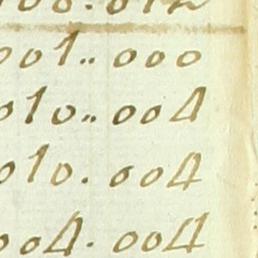 001.. 000
010.. 004
010. 004
004. 004